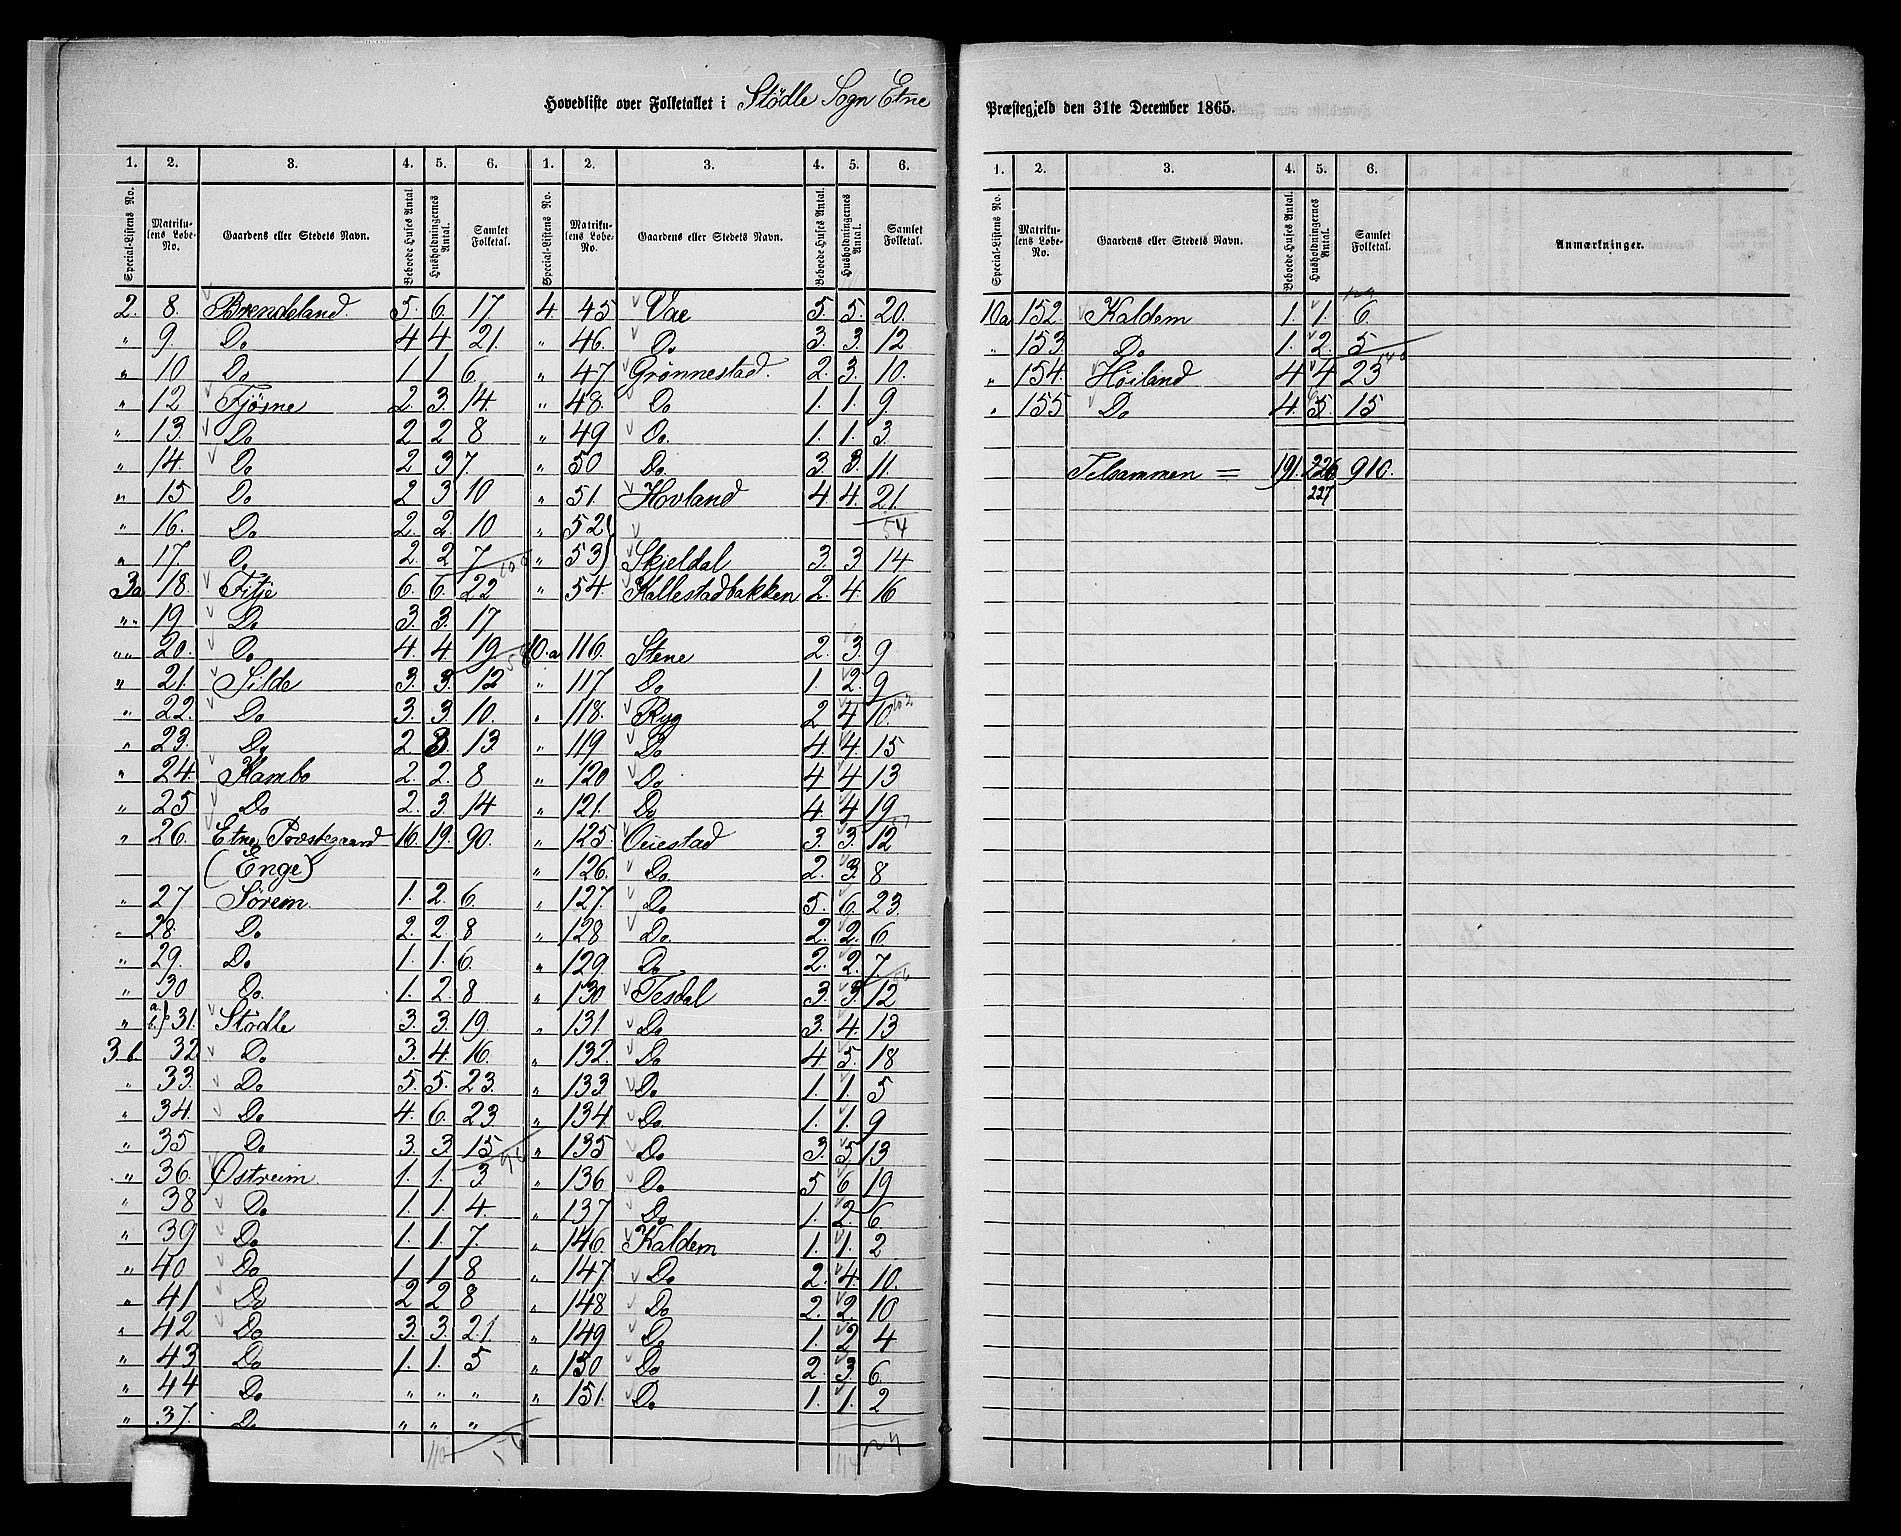 Hovedliste over Folketallet i Stödle Sogn Etne Præstegjeld den 31te December 1865.
1. 2. 3. 4. 5. 6. 1. 2. 3. 4. 5. 6.
Special-Listens No. Matrikulens Løbe-No. Gaardens eller Stedets Navn. Beboede Huses Antal Husholdningernes Antal. Samlet Folketal. Special-Listens No. Matrikulens Løbe-No. Gaardens eller Stedets Navn. Beboede Huses Antal. Husholdningernes Antal. Samlet Folketal.
2. 8. Brendeland 5. 6. 17 4. 45 Vae 5. 5. 20.
" 9. Do 4 4 21. " 46. Do 3. 3. 12
" 10 Do 1 1 6. " 47 Grønnestad. 2. 3. 10.
" 12 Fjösne 2. 3. 14. " 48. Do 1. 1. 9.
" 13. Do 2 2 8 " 49 Do. 1. 1. 3.
" 14. Do 2 3 7. " 50 Do. 3. 3. 11.
" 15 Do 2 3 10 " 51. Hovland 4. 4. 21.
" 16. Do 2. 2. 10 " 52 54
" 17. Do 2. 2 7 " 53 Skjeldal 3. 3 14
3a 18. Filje 6. 6. 22 " 54. Kallestadbakken 2. 4. 16
" 19 Do 3. 3. 17
" 20. Do 4. 4 19 10.a 116. Stene 2. 3. 9
" 21. Silde 3. 3. 12 " 117 Do 1. 2. 9
" 22. Do 3. 3. 10. " 118. Ryg 2 4 10. 102
" 23. Do 2. 3. 13. " 119 Do 4. 4. 15
" 24. Kambo 2. 2. 8 " 120 Do 4 4 13
" 25 Do 2. 3 14 " 121. Do 4 4 19
" 26. Etne Præstegaard 16. 19. 90. " 125. Ouestad 3. 3. 12
(Enge) " 126. Do. 2. 3. 8
" 27 Sørem. 1. 2. 6. " 127. Do 5. 6. 23.
" 28. Do 2. 2 8 " 128 Do. 2. 2. 6
" 29. Do 1. 1. 6. " 129. Do 2. 2. 7.
" 30 Do. 1. 2 8 " 130 Tesdal 3. 3. 12
" 31. Stödle 3. 3. 19. " 131. Do 3. 4. 13
3.b 32 Do 3. 4. 16. " 132. Do 4 5. 18
" 33. Do 5. 5. 23. " 133 Do 1. 1. 5
" 34. Do 4. 6. 23 " 134 Do 1. 1. 9
" 35 Do 3. 3. 15 " 135 Do 3. 5. 13
" 36. Östreim 1. 1. 3 " 136 Do 5 6 19
" 38 Do 1. 1. 4. " 137 Do 1. 2. 6
" 39 Do 1. 1 7. " 146. Kaldem 1. 1. 2
" 40 Do 1 1 8 " 147 Do 2. 4. 10.
" 41 Do 2 2 8 " 148 Do 2. 2. 10
" 42 Do 3. 3. 21. " 149 Do 1. 2 4
" 43 Do 1. 1. 5 " 150 Do 2 3 6
" 44 Do " " " " 151. Do 1. 1. 2
" 37. Do " " "
1. 2. 3. 4. 5. 6.
Special-Listens No. Matrikulens Løbe-No. Gaardens eller Stedets Navn. Beboede Huses Antal. Husholdningernes Antal. Samlet Folketal. Anmærkninger.
10a 152. Kaldem 1. 1. 6.
" 153 Do 1. 2. 5
" 154. Höiland 4 4 23
" 155 Do 4. 5. 15
Tilsammen = 191. 226 910.
227